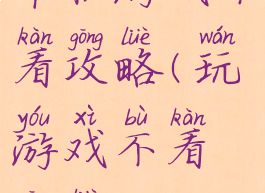 kàn gōng lüè wán
看攻略(玩
yóu xì bù kàn
游戏不看